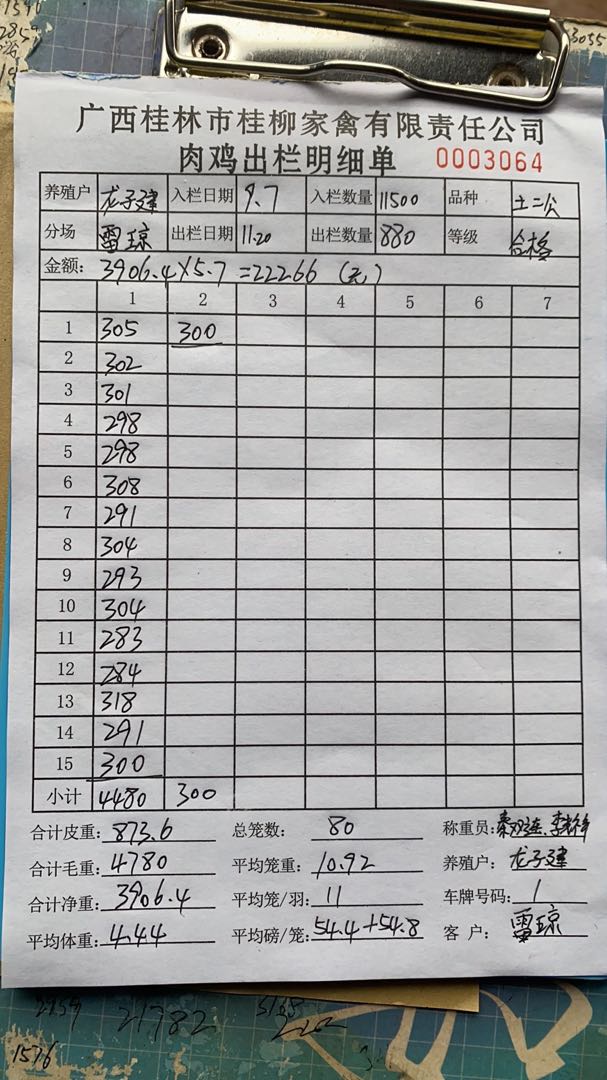 广西桂林市桂柳家禽有限责任公司
肉鸡出栏明细单 0003064
养殖户 龙子建 入栏日期 9.7 入栏数量 11500 品种 土二公
分场 雷琼 出栏日期 11.20 出栏数量 880 等级 合格
金额: 3906.4×5.7=22266 (元)
1 2 3 4 5 6 7
1 305 300
2 302
3 301
4 298
5 298
6 308
7 291
8 304
9 293
10 304
11 283
12 284
13 318
14 291
15 300
小计 4480 300
合计皮重: 873.6 总笼数: 80 称重员:
合计毛重: 4780 平均笼重: 10.92 养殖户: 龙子建
合计净重: 3906.4 平均笼/羽: 11 车牌号码: 1
平均体重: 4.44 平均磅/笼: 54.4+54.8 客户: 雷琼
21782
1576